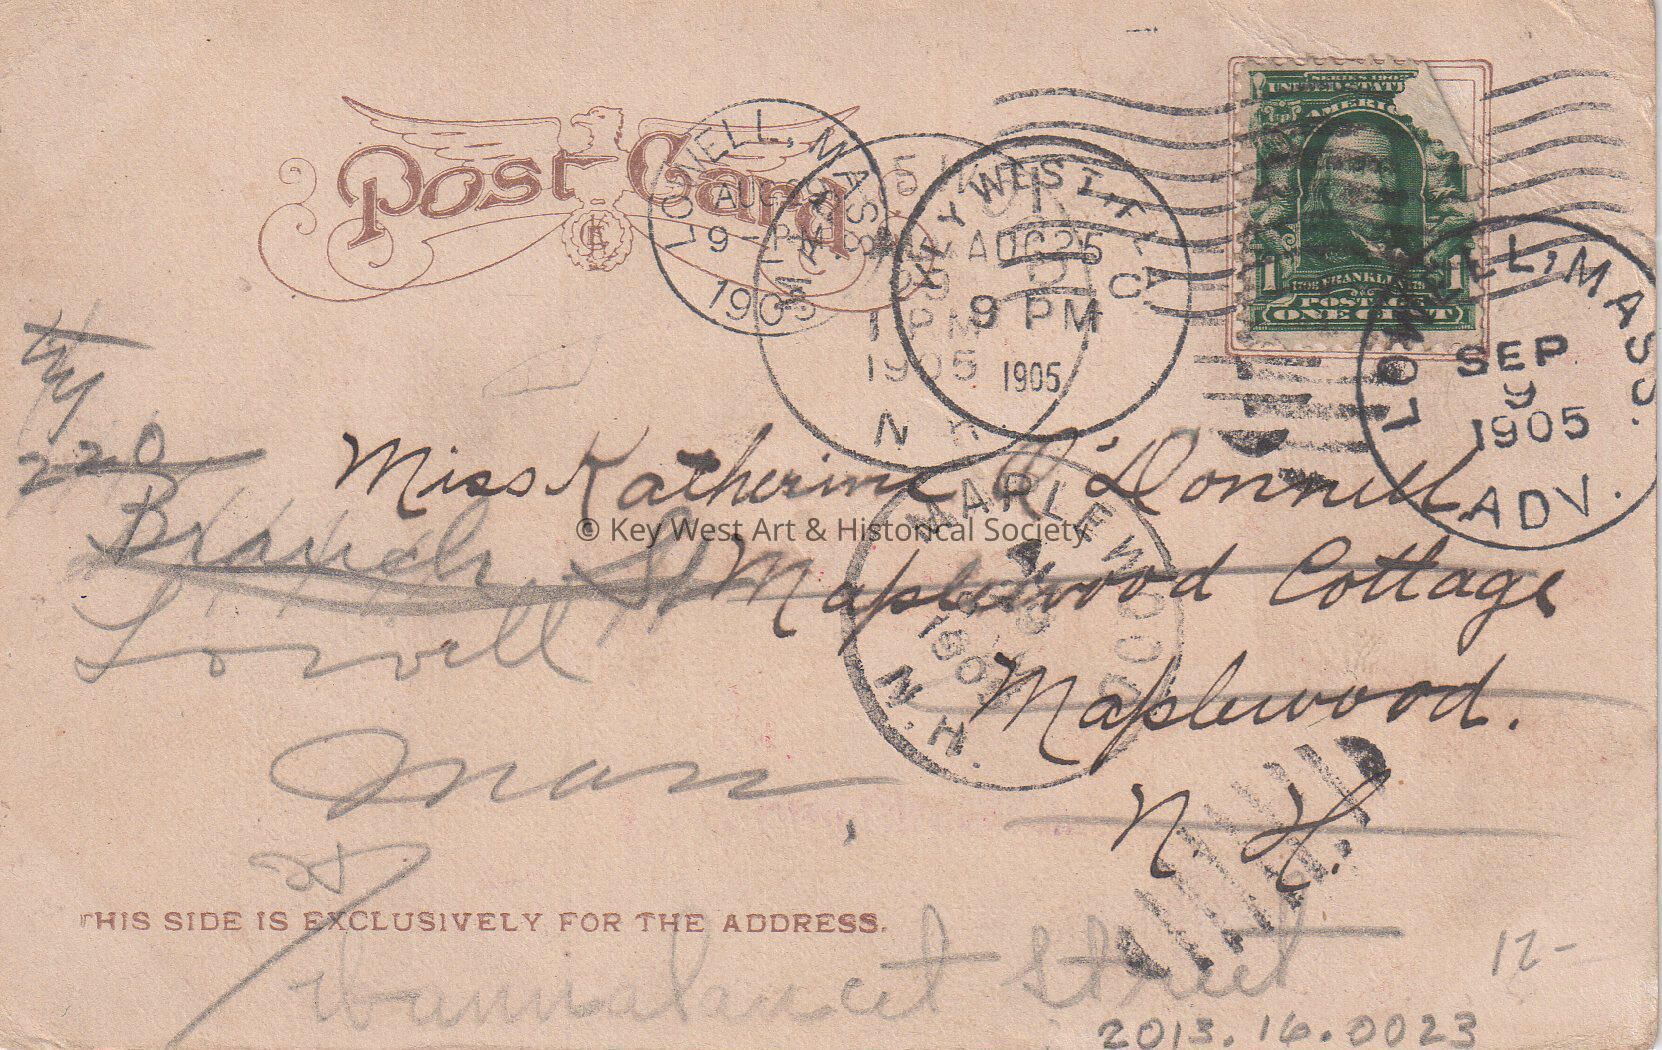 Post Card
SERIES 1902
AMERIC
1 1
FRANKLIN
POSTAGE
ONE CENT
LOWELL, MASS
AUG
9
1 PM
190
KEY WEST, FLA.
AUG 25
9 PM
1905
1 PM
1905
N H
LOWELL, MASS.
SEP
9
1905
ADV.
Try
220
Branch St
Lowell
Mass
Miss Katherine O'Donnell
Maplewood Cottage
Maplewood.
N. H.
MAPLEWOOD
N.H.
THIS SIDE IS EXCLUSIVELY FOR THE ADDRESS.
Wannalancet Street
12-
2013.16.0023
© Key West Art & Historical Society